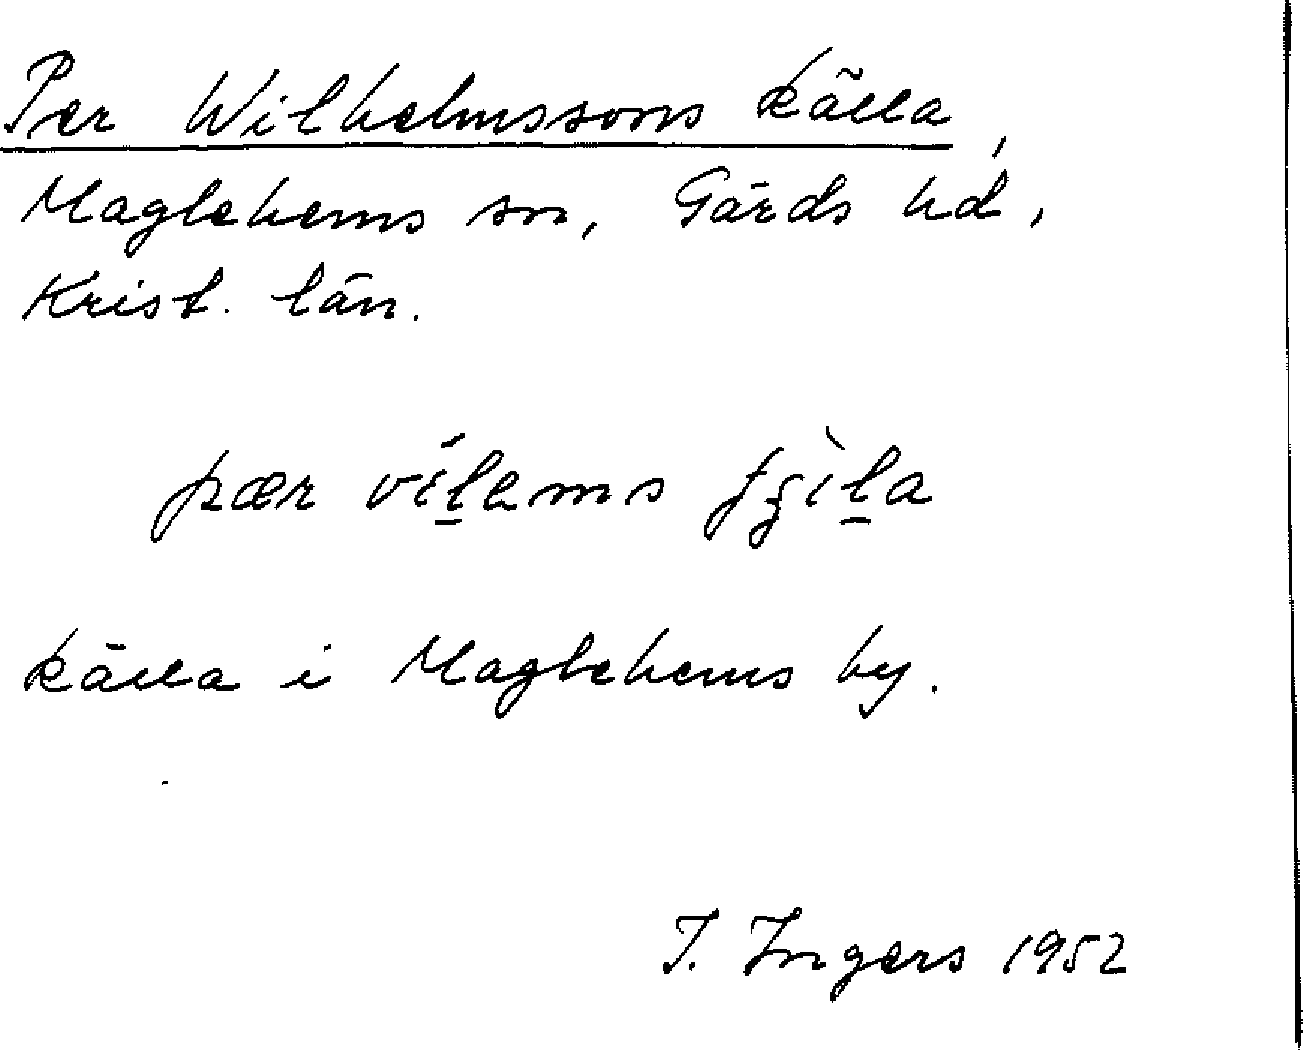 Per Wilhelmssons källa,
Maglehems sn, Gärds hd,
Krist. län.
pær vílams fʒìla
källa i Maglehems by.
I. Ingers 1952